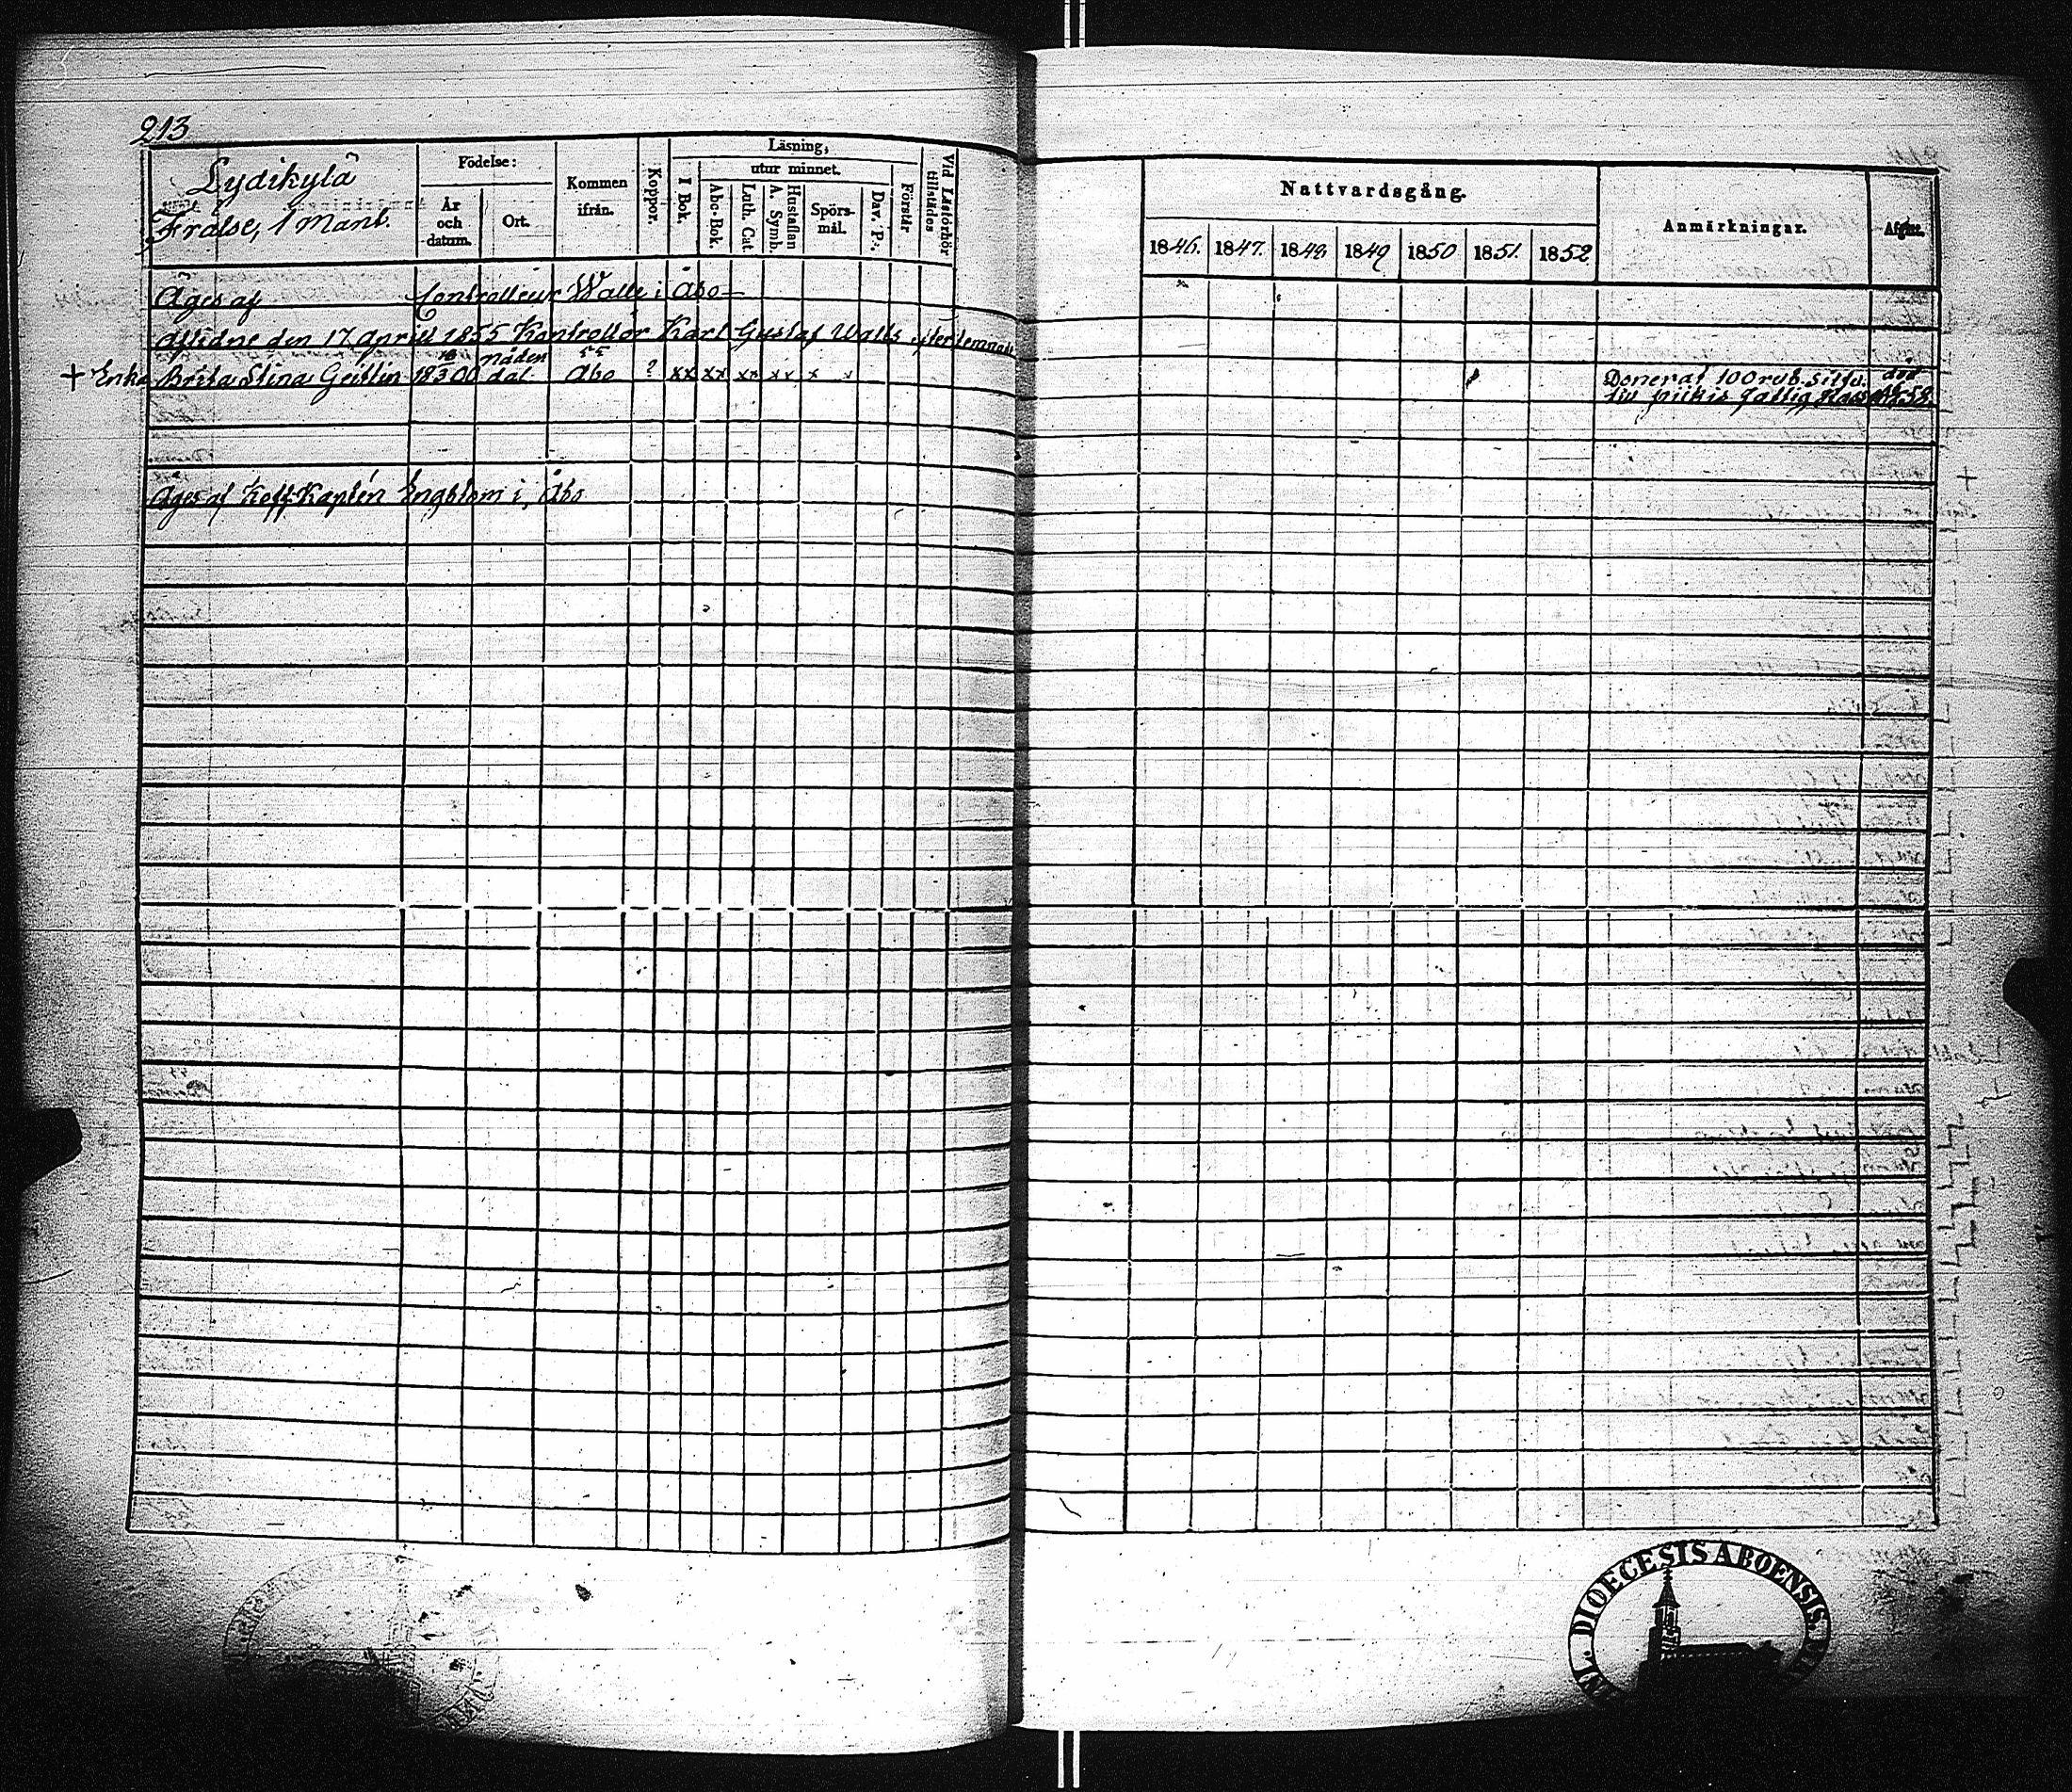 213
Lydikylä
Frälse, 1 Mant.
Födelse:
År och datum.
Ort.
Kommen ifrån.
Koppor.
Läsning,
I Bok.
utur minnet.
Abc-Bok.
Luth. Cat.
Hustaflan A. Symb.
Spörsmål.
Dav. Ps.
Förstår
Vid Läsförhör tillstädes
Nattvardsgång.
1846. 1847. 1848. 1849 1850 1851. 1852.
Anmärkningar.
Afgår.
Äges af Controlleur Walle i Åbo
Aflidne den 17 April 1855 Kontrollör Karl Gustaf Walls efterlemnade
+ Enka Brita Stina Geitlin 1800 nådendal 55 Åbo ? xx xx xx xx x x Donerat 100 rub. silfv. död
till piikis fattig Kassa 58.
Äges af Kapten Engblom i Åbo
DIOECESIS ABOENSIS